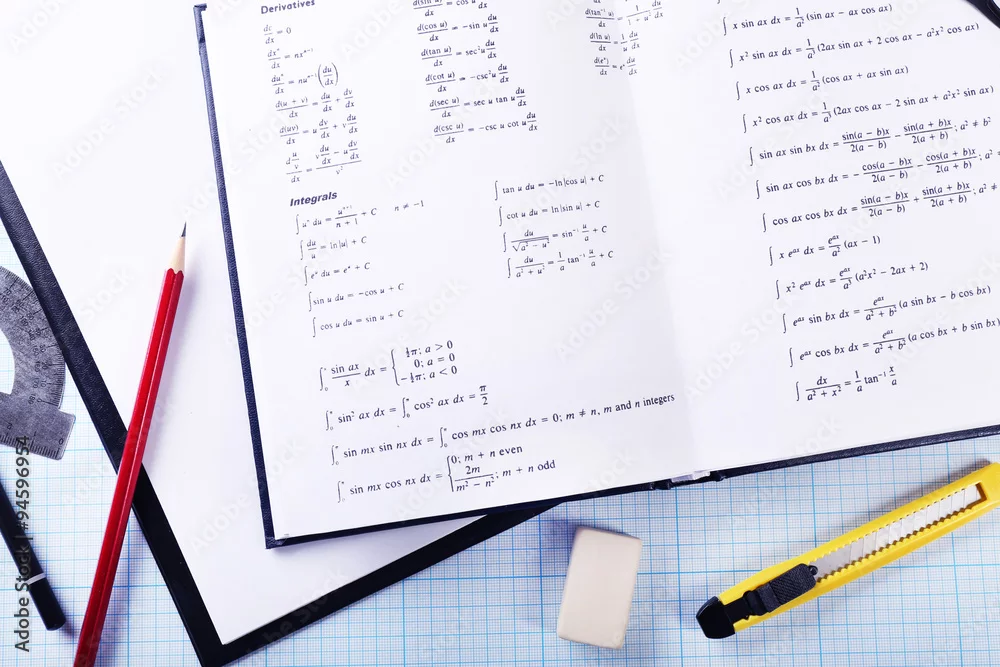 Derivatives
dc/dx = 0
dxⁿ/dx = nxⁿ⁻¹
duⁿ/dx = nuⁿ⁻¹(du/dx)
d(u + v)/dx = du/dx + dv/dx
d(uv)/dx = u dv/dx + v du/dx
d u/v / dx = (v du/dx − u dv/dx)/v²
d(sin u)/dx = cos u du/dx
d(cos u)/dx = −sin u du/dx
d(tan u)/dx = sec²u du/dx
d(cot u)/dx = −csc²u du/dx
d(sec u)/dx = sec u tan u du/dx
d(csc u)/dx = −csc u cot u du/dx
d(tan⁻¹ u)/dx = 1/(1 + u²) du/dx
d(ln u)/dx = 1/u du/dx
d(eᵘ)/dx = eᵘ du/dx
Integrals
∫ uⁿ du = uⁿ⁺¹/(n + 1) + C n ≠ −1
∫ du/u = ln |u| + C
∫ eᵘ du = eᵘ + C
∫ sin u du = −cos u + C
∫ cos u du = sin u + C
∫ tan u du = −ln|cos u| + C
∫ cot u du = ln|sin u| + C
∫ du/√(a² − u²) = sin⁻¹ u/a + C
∫ du/(a² + u²) = 1/a tan⁻¹ u/a + C
∫ sin ax/x dx = { ½π; a > 0
0; a = 0
−½π; a < 0
∫ sin² ax dx = ∫ cos² ax dx = π/2
∫ sin mx sin nx dx = ∫ cos mx cos nx dx = 0; m ≠ n, m and n integers
∫ sin mx cos nx dx = { 0; m + n even
2m/(m² − n²); m + n odd
∫ x sin ax dx = 1/a² (sin ax − ax cos ax)
∫ x² sin ax dx = 1/a³ (2ax sin ax + 2 cos ax − a²x² cos ax)
∫ x cos ax dx = 1/a² (cos ax + ax sin ax)
∫ x² cos ax dx = 1/a³ (2ax cos ax − 2 sin ax + a²x² sin ax)
∫ sin ax sin bx dx = sin(a − b)x/2(a − b) − sin(a + b)x/2(a + b); a² ≠ b²
∫ sin ax cos bx dx = −cos(a − b)x/2(a − b) − cos(a + b)x/2(a + b); a² ≠
∫ cos ax cos bx dx = sin(a − b)x/2(a − b) + sin(a + b)x/2(a + b); a² ≠
∫ x eᵃˣ dx = eᵃˣ/a² (ax − 1)
∫ x² eᵃˣ dx = eᵃˣ/a³ (a²x² − 2ax + 2)
∫ eᵃˣ sin bx dx = eᵃˣ/(a² + b²) (a sin bx − b cos bx)
∫ eᵃˣ cos bx dx = eᵃˣ/(a² + b²) (a cos bx + b sin bx)
∫ dx/(a² + x²) = 1/a tan⁻¹ x/a
Adobe Stock | #94596954